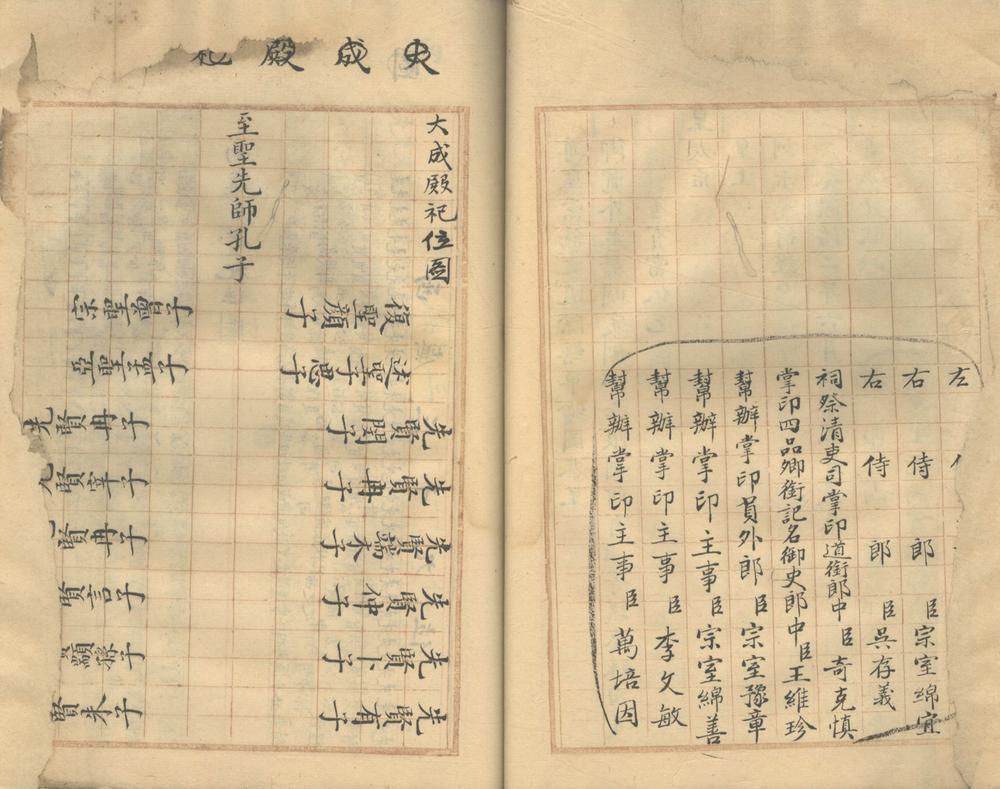 左
右 侍 郎 臣 宗室綿宜
右 侍 郎 臣 吳存義
祠祭清吏司掌印道銜郎中 臣 奇克慎
掌印四品卿銜記名御史郎中 臣 王維珍
幫辦掌印員外郎 臣 宗室豫章
幫辦掌印主事 臣 宗室綿善
幫辦掌印主事 臣 李文敏
幫辦掌印主事 臣 萬培因
成殿
大成殿祀位圖
至聖先師孔子
復聖顏子
述聖子思子
先賢閔子
先賢冉子
先賢端木子
先賢仲子
先賢卜子
先賢有子
宗聖曾子
亞聖孟子
先賢冉子
賢宰子
賢冉子
賢言子
顓孫子
賢朱子